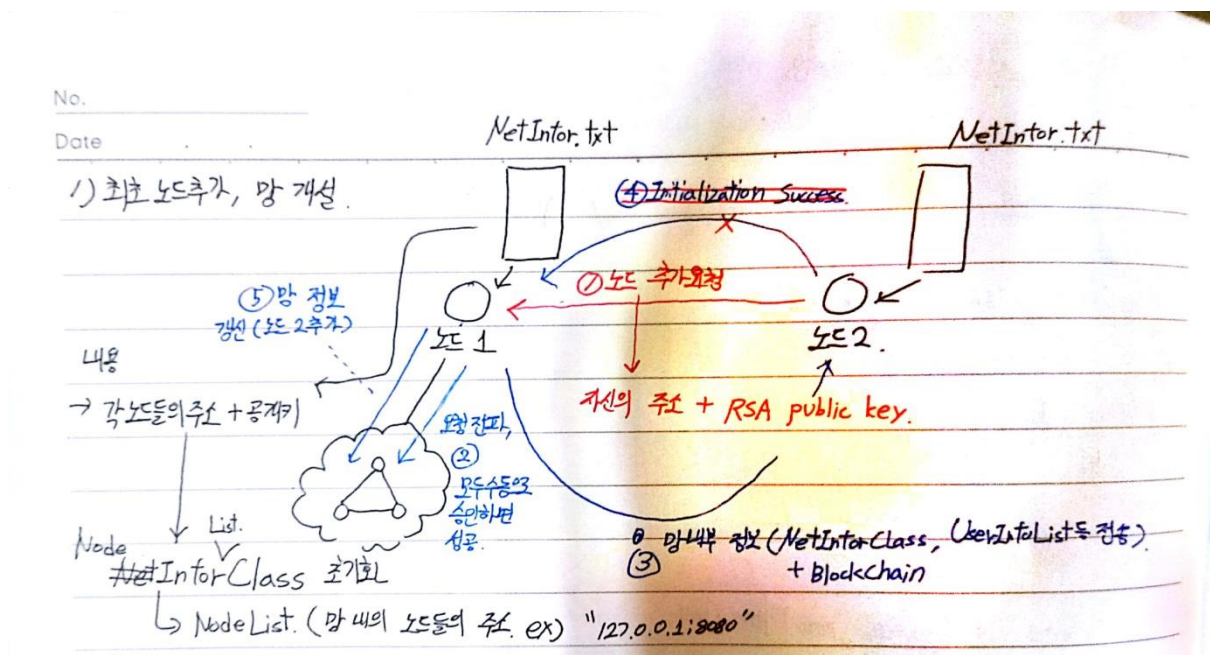 No.
Date
NetInfor.txt
NetInfor.txt
1) 최초 노드추가, 망 개설.
④ Initialization Success.
X
① 노드 추가요청
⑤ 망 정보
갱신 (노드 2추가)
노드 1
노드 2.
내용
→ 각 노드들의 주소 + 공개키
자신의 주소 + RSA public key.
요청 전파,
②
모두 수동으로
승인하면
성공.
List.
Node
NetInforClass 초기화
③ 망 내부 정보 (NetInforClass, UserInfoList등 전송).
+ BlockChain
↳ NodeList. (망 내의 노드들의 주소. ex) "127.0.0.1:8080"